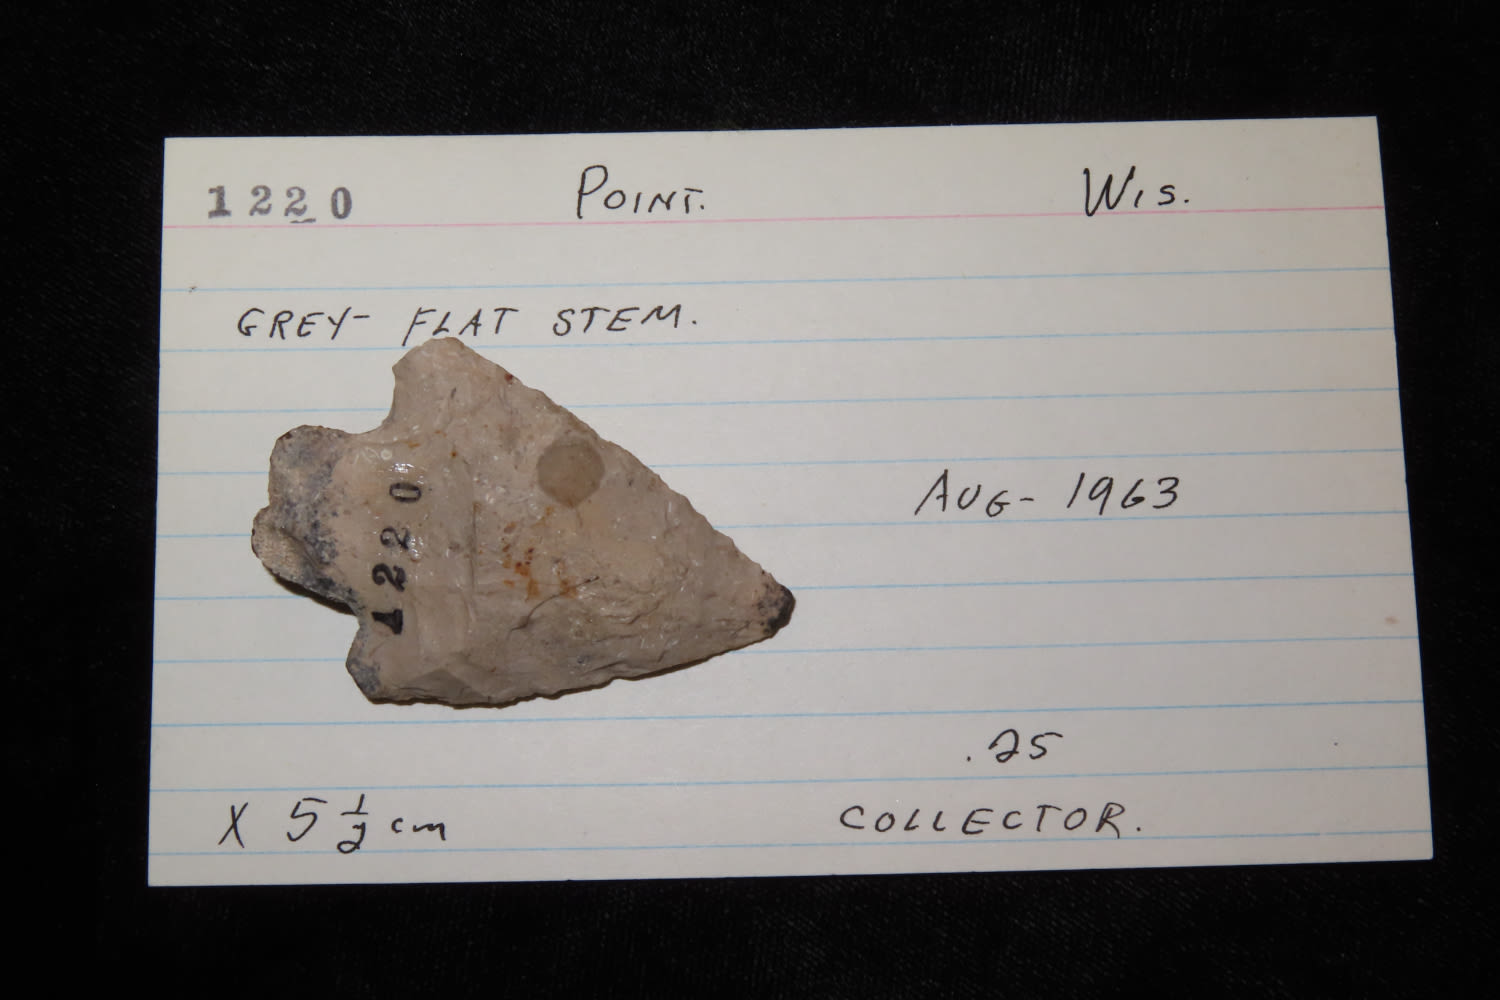 1220 POINT. WIS.
GREY- FLAT STEM.
1220
AUG- 1963
.25
X 5 1/2 cm COLLECTOR.